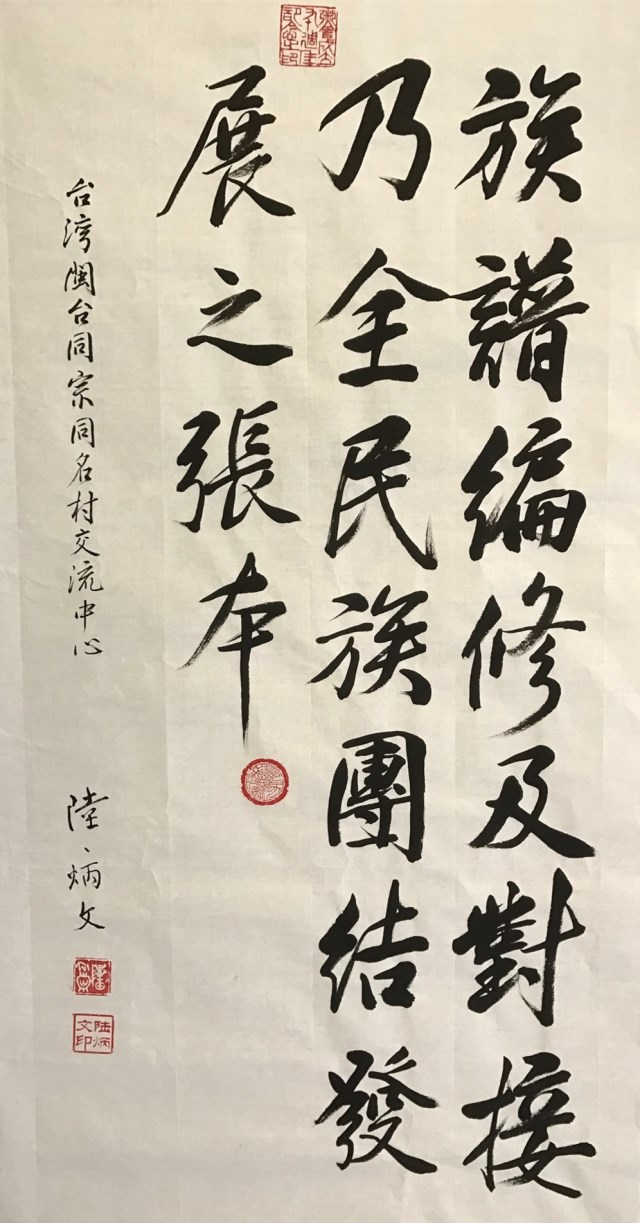 族譜編修及對接
乃全民族團結發
展之張本
台灣閩台同宗同名村交流中心
陸炳文
陆炳
文印